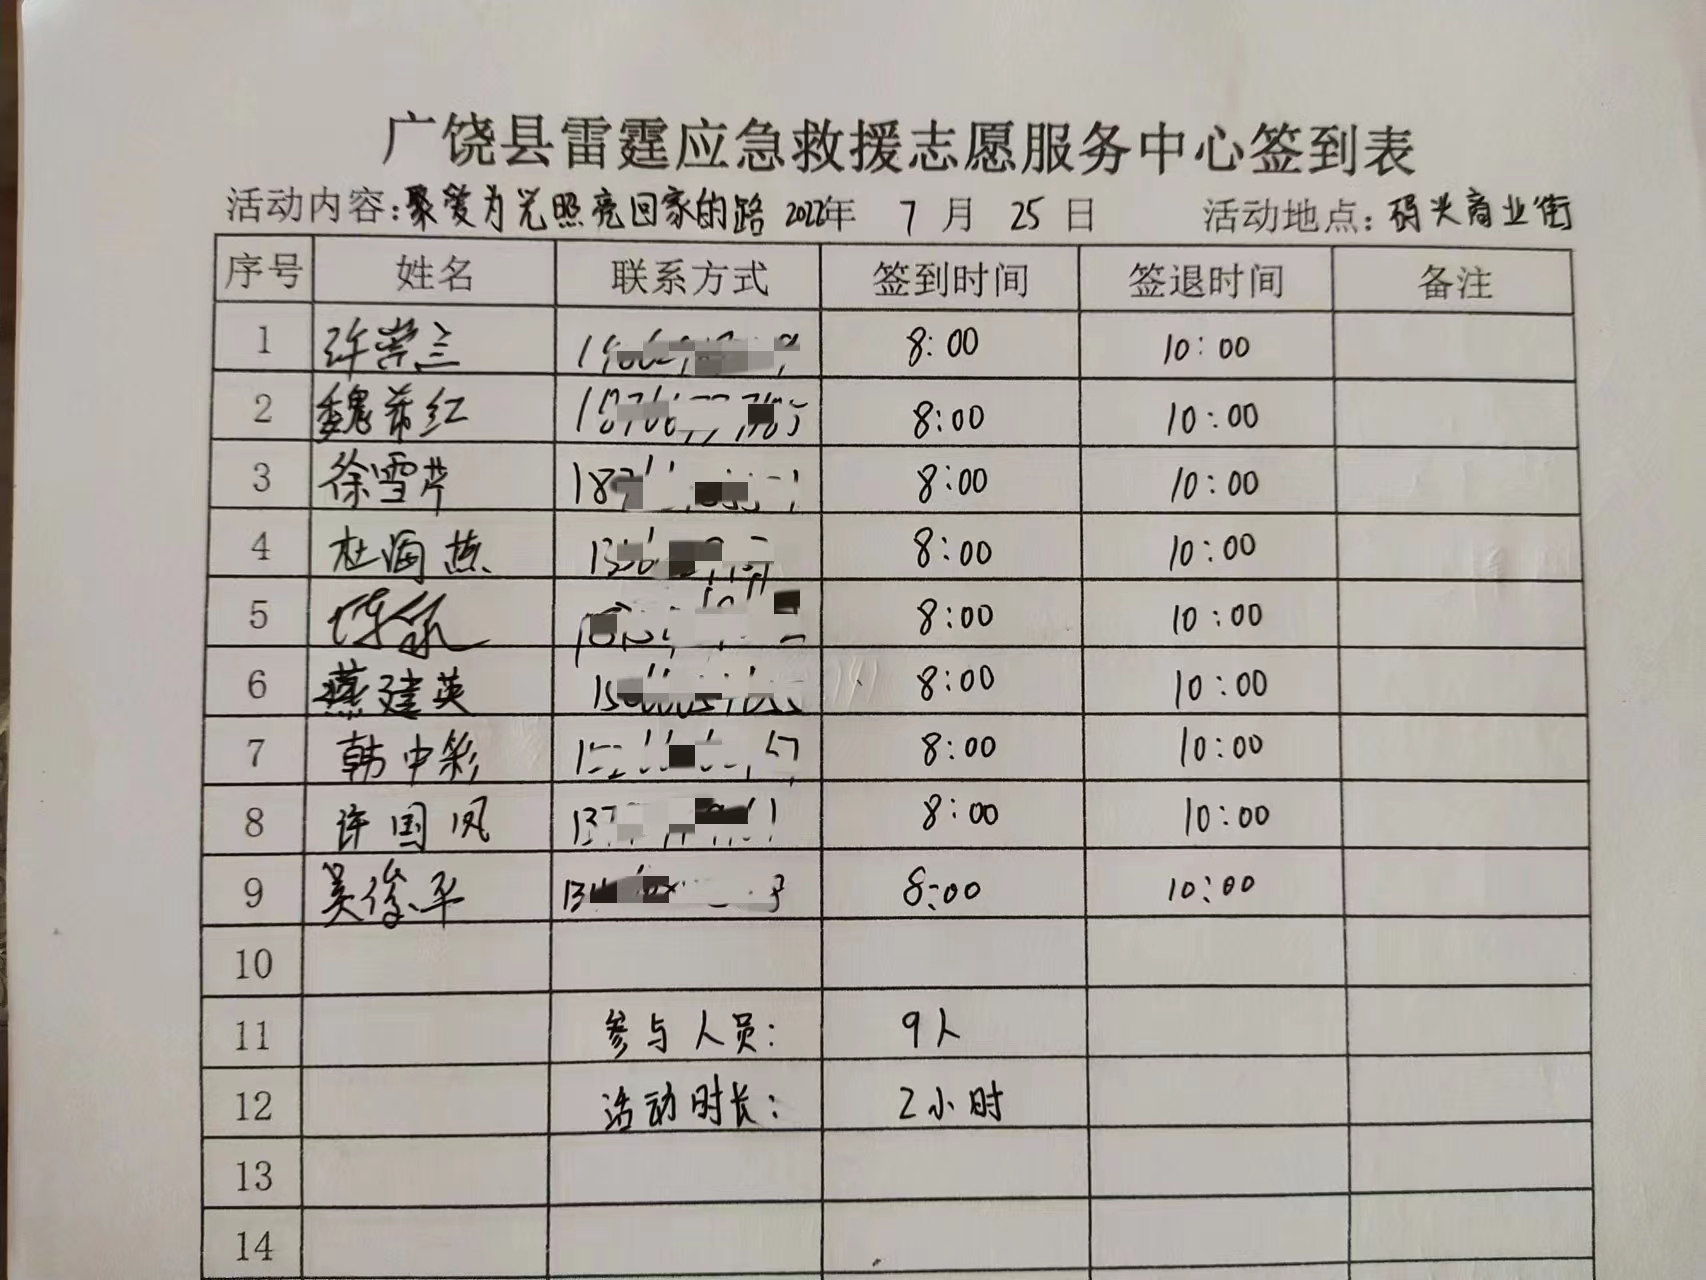 广饶县雷霆应急救援志愿服务中心签到表
活动内容:聚爱为光照亮回家的路 2022年 7 月 25 日 活动地点:码头商业街
序号 姓名 联系方式 签到时间 签退时间 备注
1 许崇兰 8:00 10:00
2 魏希红 8:00 10:00
3 徐雪芹 8:00 10:00
4 杜海燕 8:00 10:00
5 8:00 10:00
6 燕建英 8:00 10:00
7 韩中彩 8:00 10:00
8 许国凤 8:00 10:00
9 吴俊平 8:00 10:00
10
11 参与人员: 9人
12 活动时长: 2小时
13
14